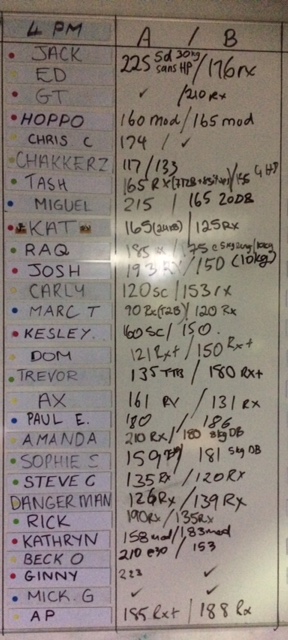 4 PM A / B
JACK 225 5d 30kg sans HP / 176 rx
ED
GT ✓ / 210 Rx
HOPPO 160 mod / 165 mod
CHRIS C 174 / ✓
CHAKKERZ 117 / 133
TASH 165 RX / 156 G HP
MIGUEL 215 / 165 20DB
KAT 165 / 125 Rx
RAQ 185 / 75
JOSH 193 / 150 (10kg)
CARLY 120 sc / 153 rx
MARC T 90 Rx (T2B) / 120 Rx
KESLEY. 160 sc / 150.
DOM 121 Rx+ / 150 Rx+
TREVOR 135 TTB / 180 Rx+
AX 161 RX / 131 Rx
PAUL E. 180 / 186
AMANDA 210 Rx / 180 8kg DB
SOPHIE S 159 / 181 5kg DB
STEVE G 135 Rx / 120 Rx
DANGERMAN 126 Rx / 139 Rx
RICK 190 Rx / 135 Rx
KATHRYN 158 mod / 183 mod
BECK O 210 / 153
GINNY 223 ✓
MICK. G ✓ ✓
AP 185 Rx+ / 188 Rx